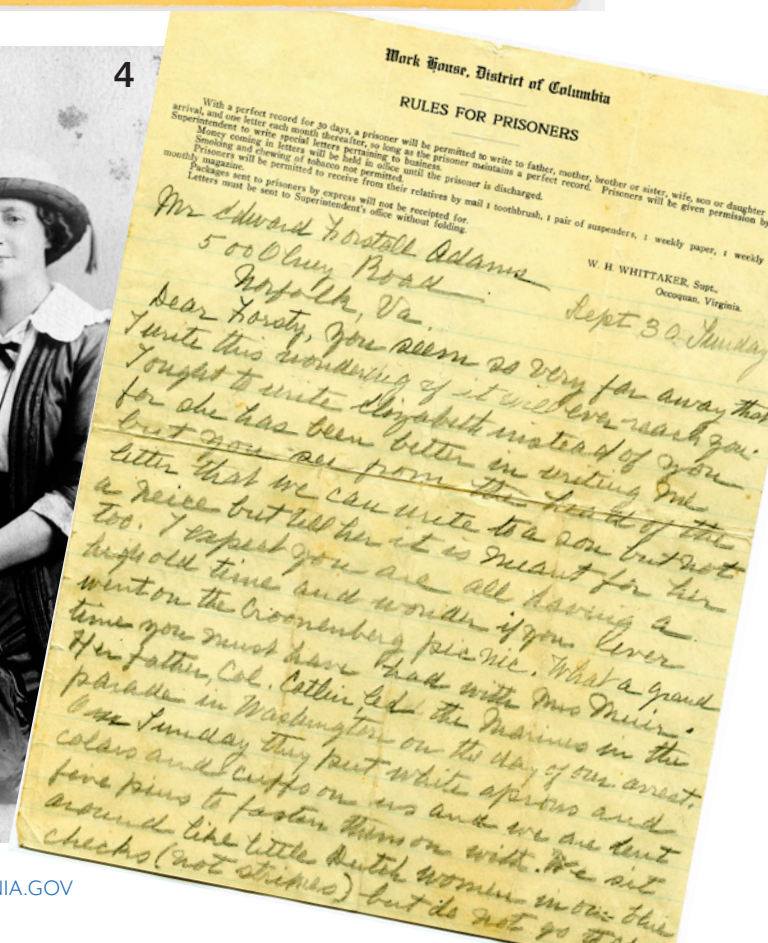 4
Work House, District of Columbia
RULES FOR PRISONERS
With a perfect record for 30 days, a prisoner will be permitted to write to father, mother, brother or sister, wife, son or daughter
arrival, and one letter each month thereafter, so long as the prisoner maintains a perfect record. Prisoners will be given permission by
Superintendent to write special letters pertaining to business.
Money coming in letters will be held in office until the prisoner is discharged.
Smoking and chewing of tobacco not permitted.
Prisoners will be permitted to receive from their relatives by mail 1 toothbrush, 1 pair of suspenders, 1 weekly paper, 1 weekly
monthly magazine.
Packages sent to prisoners by express will not be receipted for.
Letters must be sent to Superintendent's office without folding.
W. H. WHITTAKER, Supt.,
Occoquan, Virginia.
Mr Edward Forstall Adams
500 Olney Road
Norfolk, Va.
Sept 30 Sunday
Dear Forsty, you seem so very far away that
I write this wondering if it will ever reach you.
I ought to write Elizabeth instead of you
for she has been better in writing me
but you see from the head of the
letter that we can write to a son but not
a neice but tell her it is meant for her
too. I expect you are all having a
high old time and wonder if you ever
went on the Croonenberg picnic. What a grand
time you must have had with Mrs Muir.
Her father, Col. Catlin, led the Marines in the
parade in Washington on the day of our arrest.
On Sunday they put white aprons and
colars and cuffs on us and we are lent
five pins to fasten them on with. We sit
around like little Dutch women in our blue
checks (not stripes) but do not go to
NIA.GOV